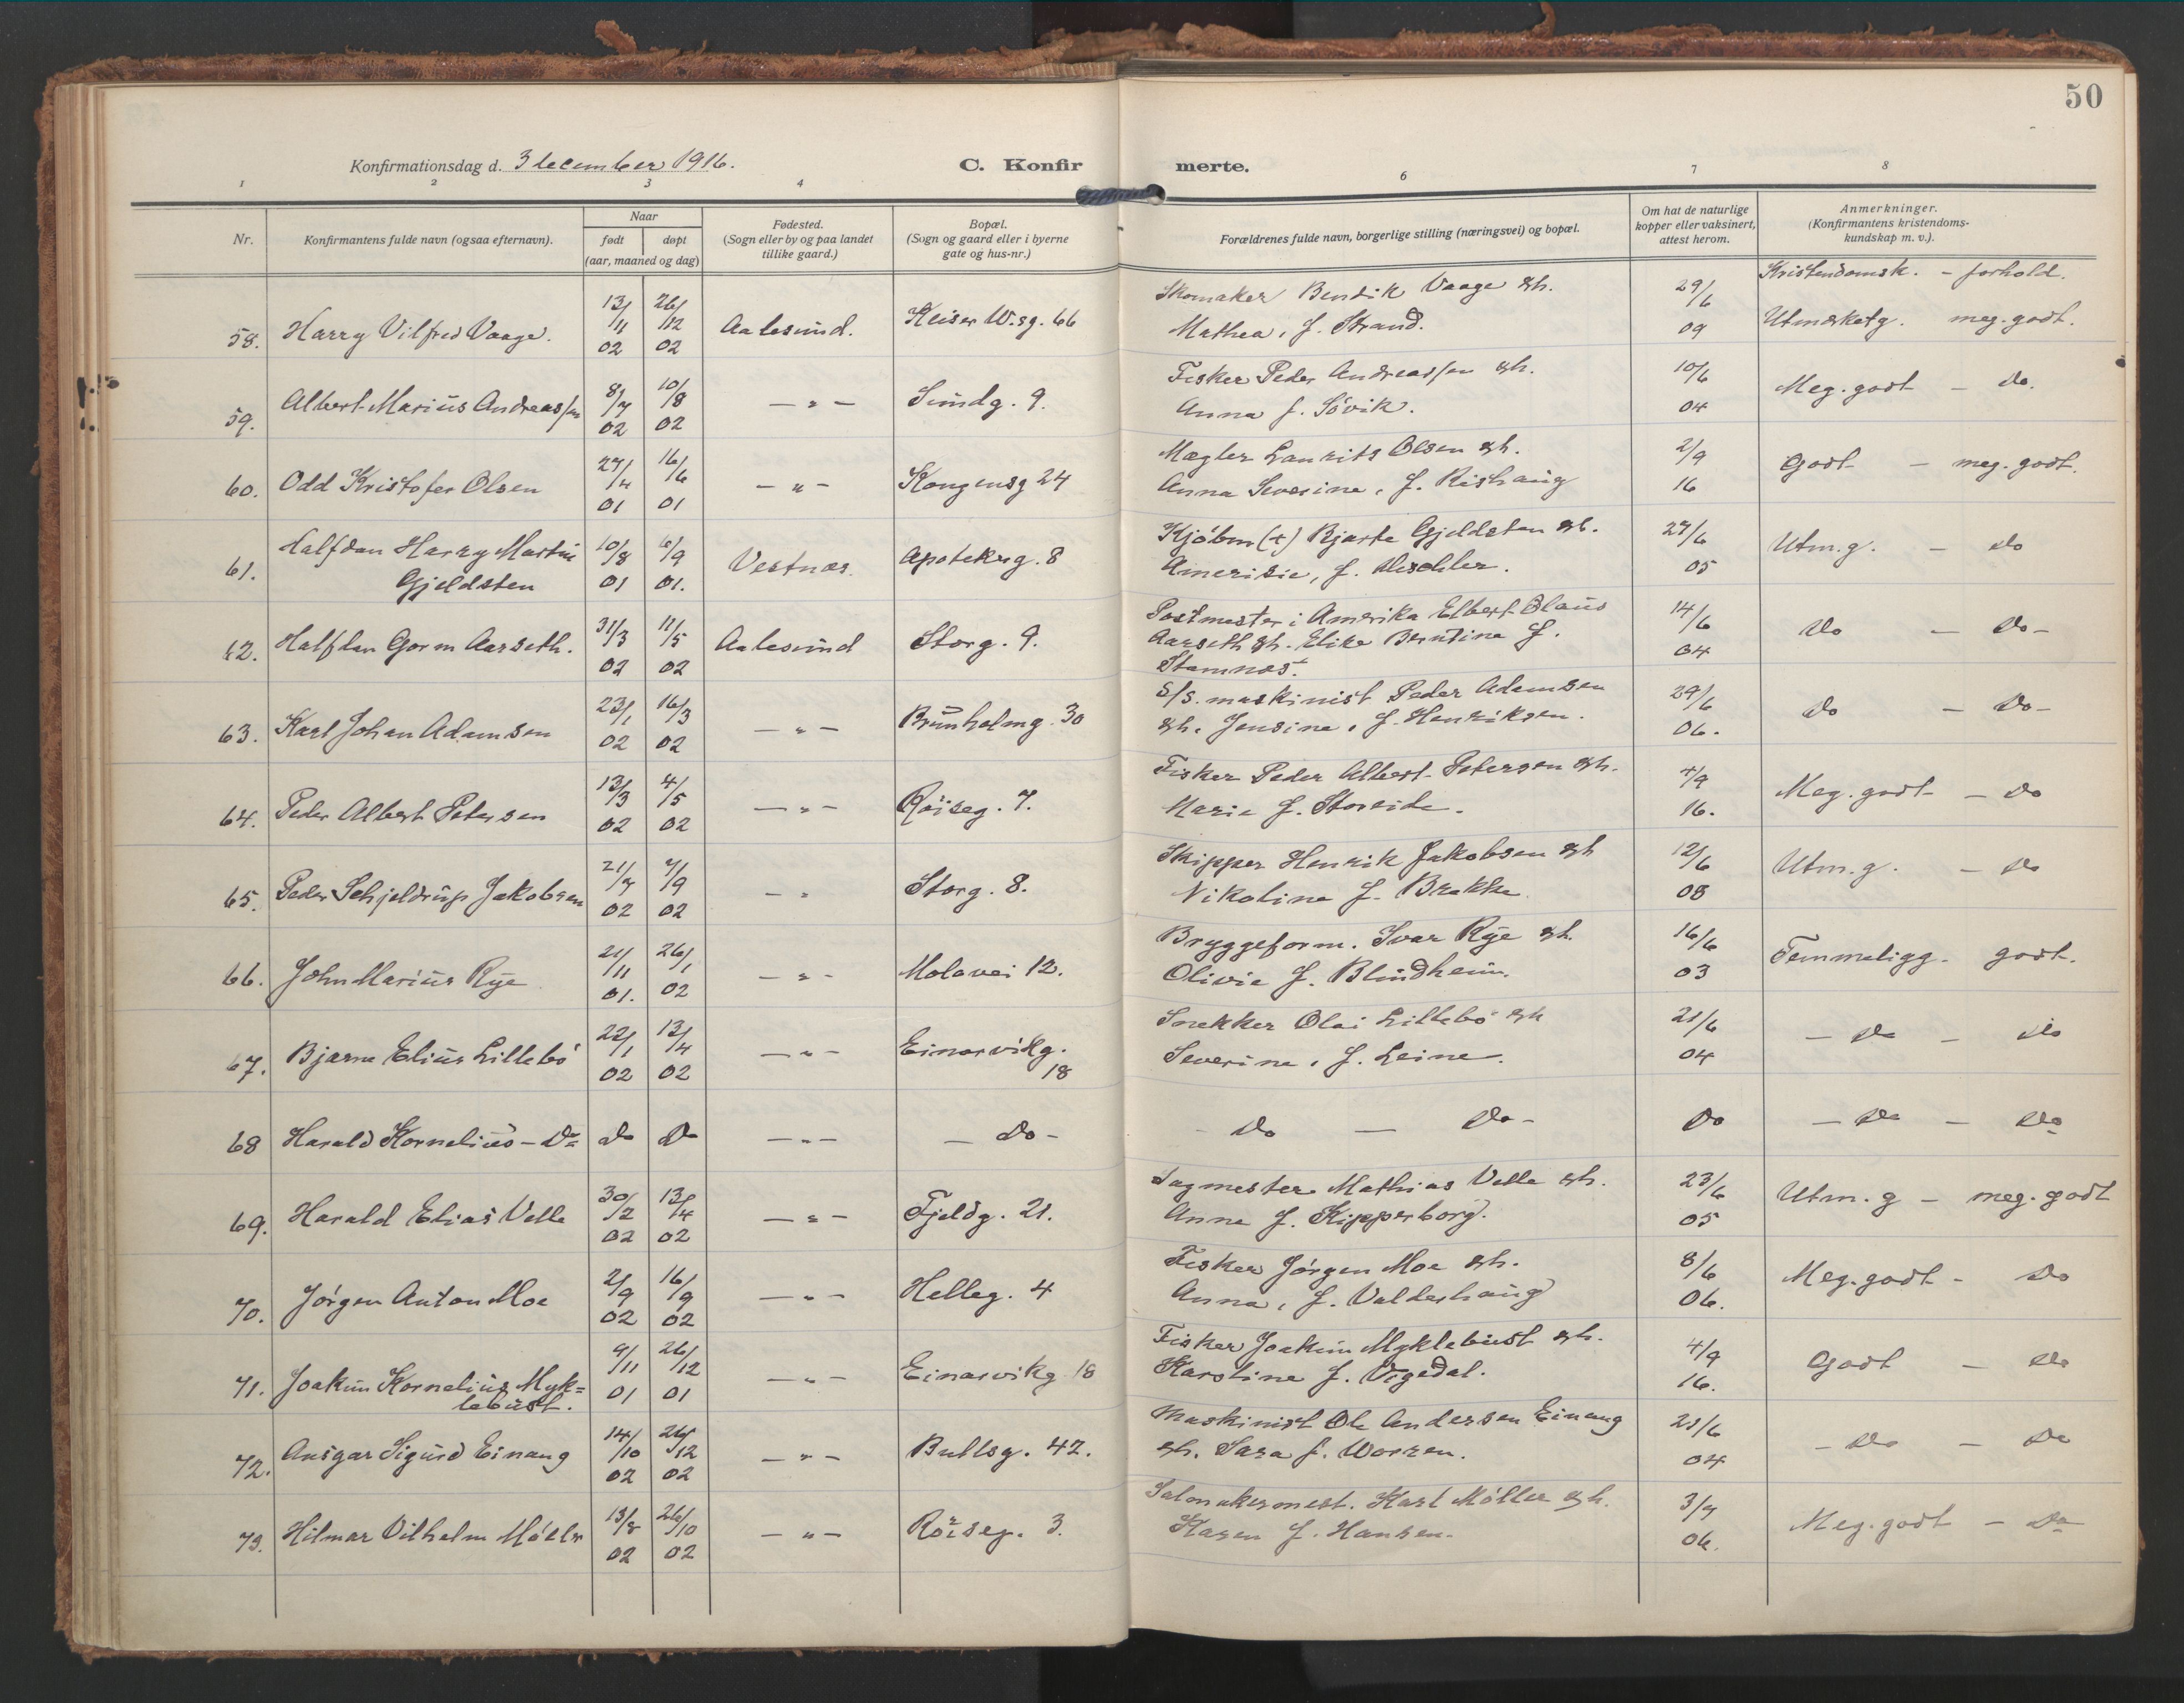 50
Konfirmationsdag d. 3 december 1916. C. Konfir merte.
1 2 3 4 6 7 8
Nr. Konfirmantens fulde navn (ogsaa efternavn). Naar født døpt (aar, maaned og dag) Fødested. (Sogn eller by og paa landet tillike gaard.) Bopæl. (Sogn og gaard eller i byerne gate og hus-nr.) Forældrenes fulde navn, borgerlige stilling (næringsvei) og bopæl. Om hat de naturlige kopper eller vaksinert, attest herom. Anmerkninger. (Konfirmantens kristendoms-kundskap m. v.).
Kristendomsk. - forhold.
58. Harry Vilfred Vaage. 13/11 02 26/12 02 Aalesund. Keiser W.sg. 66 Skomaker Bendik Vaage &h. Mathea, f. Strand. 29/6 09 Utmerketg. meg. godt.
59. Albert Marius Andreassen 8/7 02 10/8 02 - " - Sundg. 9. Fisker Peder Andreassen &h. Anna f. Sövik. 10/6 04 Meg. godt - Do.
60. Odd Kristofer Olsen 27/4 01 16/6 01 - " - Kongensg 24 Mægler Laurits Olsen &h. Anna Severine, f. Rishaug 2/9 16 Godt - meg. godt.
61. Halfdan Harry Martin Gjeldsten 10/8 01 6/9 01. Vestnæs. Apotekerg. 8 Kjøbm (+) Bjarte Gjeldsten &h. Amerisie, f. 27/6 05 Utm. g. - do
62. Halfdan Gorm Aarseth. 31/3 02 11/5 02 Aalesund Storg. 9. Postmester i Amerika Elbert Olaus Aarseth &h. Elise Berntine f. Stamnes. 14/6 04 do - Do-
63. Karl Johan Adamsen 23/1 02 16/3 02 - " - Brunholmg. 30 S/S. maskinist Peder Adamsen &h. Jensine, f. Henriksen. 29/6 06. do - Do-
64. Peder Albert Petersen 13/3 02 4/5 02 - " - Röiseg. 7. Fisker Peder Albert Petersen &h. Marie f. Storeide. 4/9 16. Meg. godt - Do
65. Peder Schjeldrup Jakobsen 21/7 02 7/9 02 - " Storg. 8. Skipper Henrik Jakobsen &h Nikoline f. Brekke. 12/6 08 Utm. g. - do
66. John Marius Rye 21/11 01. 26/1 02 - " - Molovei 12. Bryggeform. Ivar Rye &h. Olivie f. Blindheim. 16/6 03 Temmeligg. godt.
67. Bjarne Elius Lillebö 22/1 02 13/4 02 - " - Einarvikg. 18 Snekker Olai Lillebö &h Severine, f. Leine. 21/6 04 - Do - do
68 Harald Kornelius - Do= do Do - " - - Do - - Do - Do - Do - Do - Do
69. Harald Elias Velle 30/2 02 13/4 02 - " - Fjeldg. 21. Sagmester Mathias Velle &h. Anne f. Kipperborg. 23/6 05 Utm. g - meg. godt
70. Jørgen Anton Moe 2/9 02 16/9 02 - " - Helleg. 4 Fisker Jørgen Moe &h. Anna, f. Valderhaug 8/6 06. Meg. godt - Do
71. Joakim Kornelius Myk=lebust. 9/11 01 26/12 01 - " - Einarvikg. 18 Fisker Joakim Myklebust &h. Karoline f. Vigedal. 4/9 16. Godt - Do
72. Ansgar Sigurd Einang 14/10 02 26/12 02 - " - Bullsg. 42. Maskinist Ole Andersen Einang &h. Sara f. Worren. 21/6 04 - Do - Do
73. Hilmar Vilhelm Möller 13/8 02 26/10 02 - " - Röiseg. 3. Salmakermest. Karl Möller &h. Karen f. Hansen. 3/7 06. Meg. godt - Do